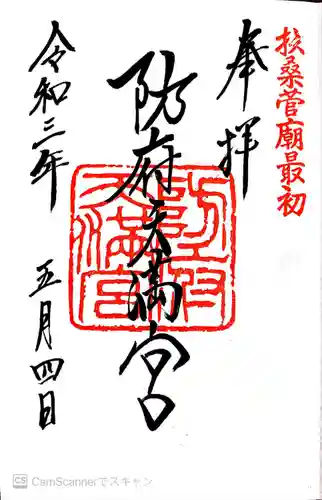 扶桑菅廟最初
奉拝
防府天満宮
防府天満宮
令和三年
五月四日
CS CamScannerでスキャン